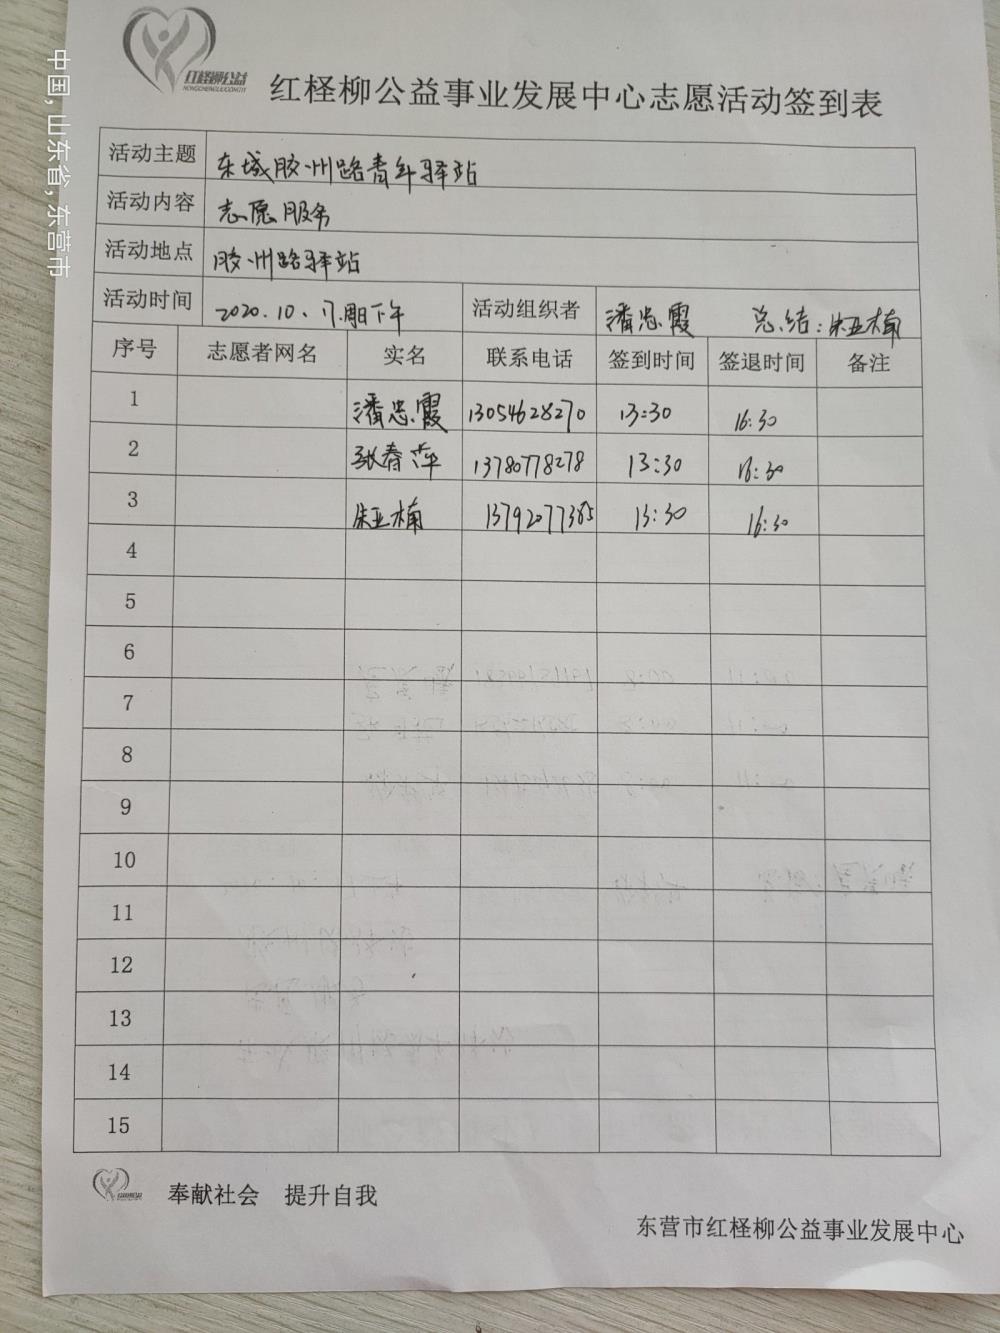 中国,山东省,东营市
红柽柳公益
HONGCHENGLIUGONGYI
红柽柳公益事业发展中心志愿活动签到表
活动主题 东城胶州路青年驿站
活动内容 志愿服务
活动地点 胶州路驿站
活动时间 2020.10、17.周日下午 活动组织者 潘忠霞 总结:朱亚楠
序号 志愿者网名 实名 联系电话 签到时间 签退时间 备注
1 潘忠霞 13054628270 13:30 16:30
2 张春萍 13780778278 13:30 16:30
3 朱亚楠 13792077385 13:30 16:30
4
5
6
7
8
9
10
11
12
13
14
15
奉献社会 提升自我
东营市红柽柳公益事业发展中心